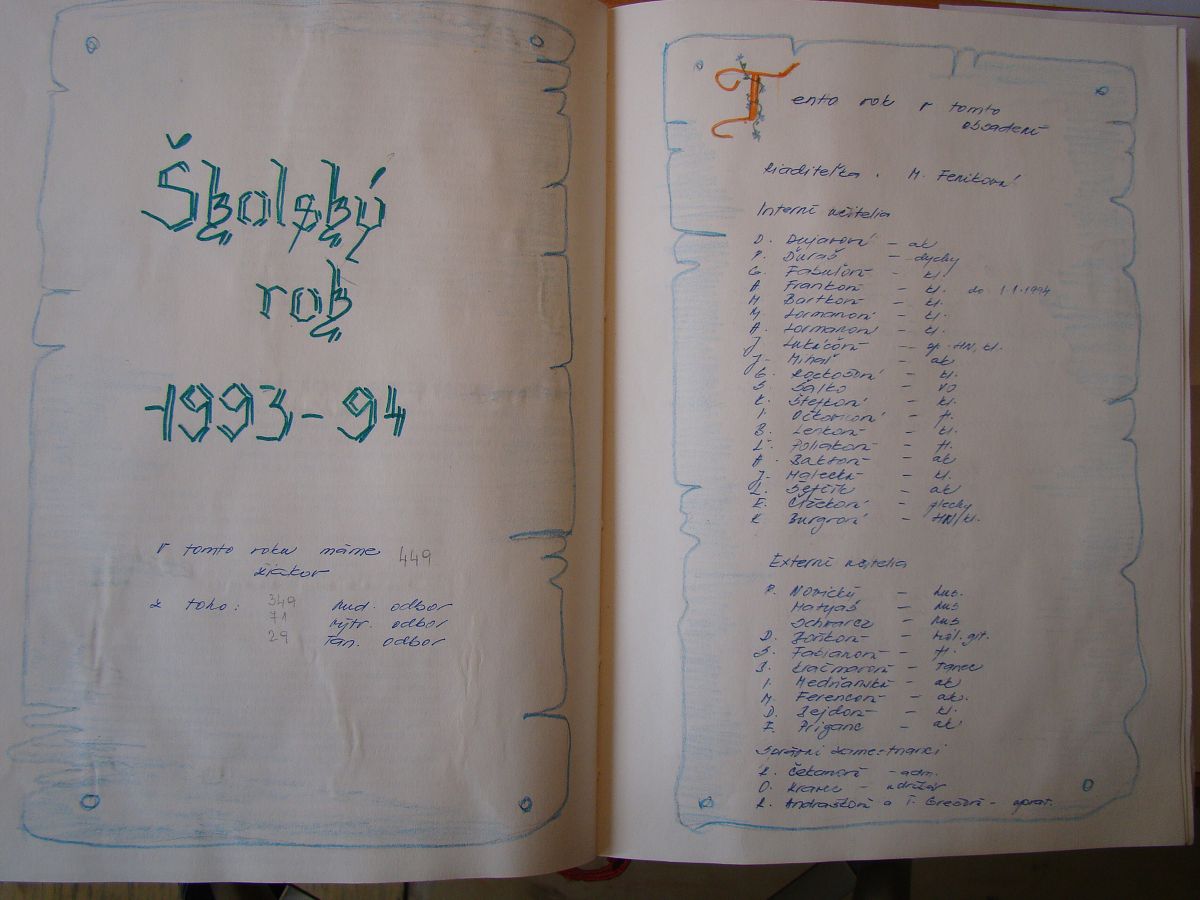 Školský
rok
1993-94
V tomto roku máme 449
žiakov
z toho: 349 hud. odbor
71 výtv. odbor
29 tan. odbor
Tento rok v tomto
obsadení
Riaditeľka . M. Feníková
Interní učitelia
D. Dujavová - ak
P. Ďuraš - dychy
G. - kl.
A Franková - kl. do 1.1.1994
M. Bartková - kl.
M. - kl.
A. - kl.
J. Lukáčová - sp. HN, kl.
J. Mihaľ - ak
G. - kl.
S. Šalko - VO
K. Štefková - kl.
I. Očkovičová - H.
B. Lenková - kl.
Ľ. Poliaková - H.
A. - ak
J. Halecká - kl.
L. Šefčík - ak
E. Čížeková - plechy
K - HN/kl.
Externí učitelia
P. Novický - hus.
Matyáš - hus
Schvarcz - hus
D. - kl. git.
S. Fabianová - H.
B. Kračmárová - tanec
I. Medňanská - ak
M. Ferencová - ak.
D. Bejdová - kl.
E. Priganc - ak
Správni zamestnanci
A. Čekanová - adm.
O. Kranec - údržbár
A. Andraščová a T. Grečová - uprat.